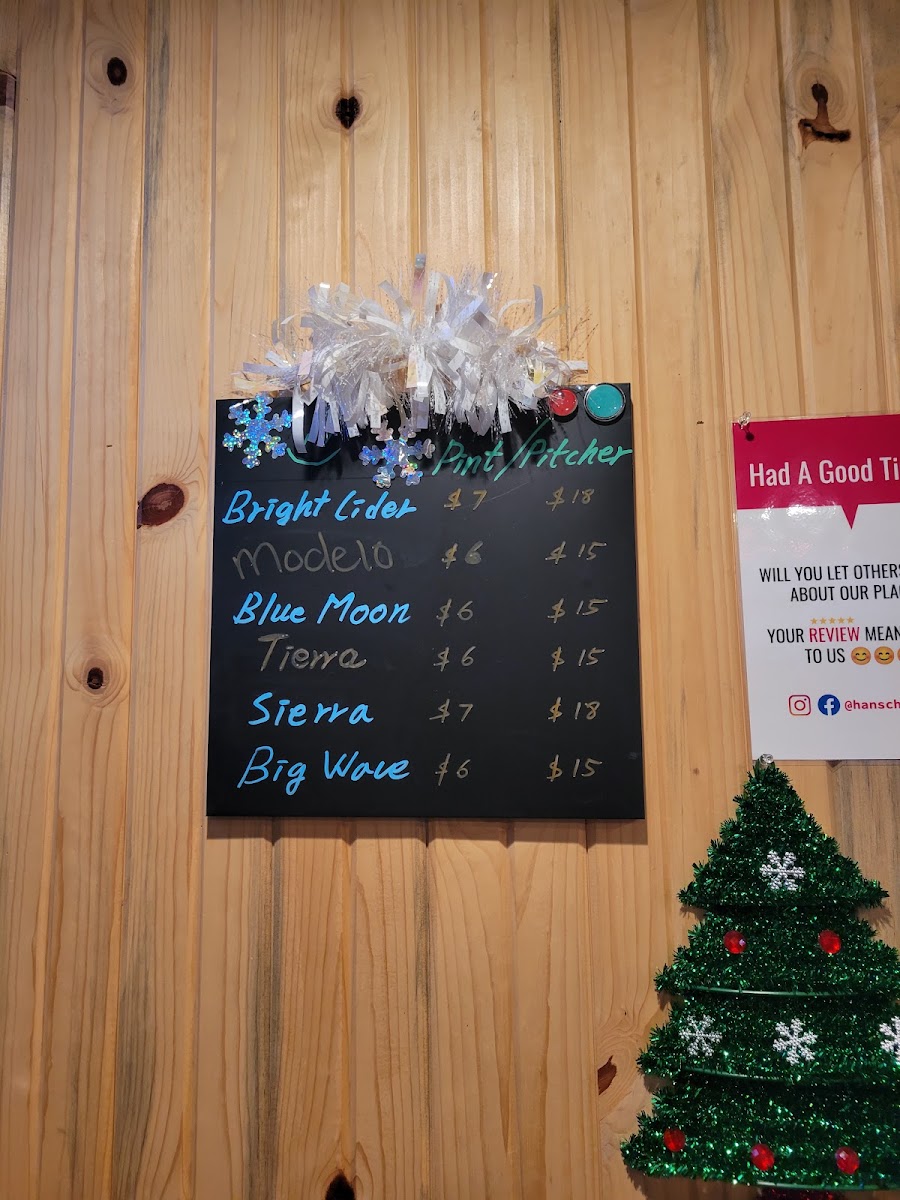 Pint/Pitcher
Bright Cider $7 $18
Modelo $6 $15
Blue Moon $6 $15
Tierra $6 $15
Sierra $7 $18
Big Wave $6 $15
Had A Good Ti
WILL YOU LET OTHERS
ABOUT OUR PLA
YOUR REVIEW MEAN
TO US 😊😊
@hansch